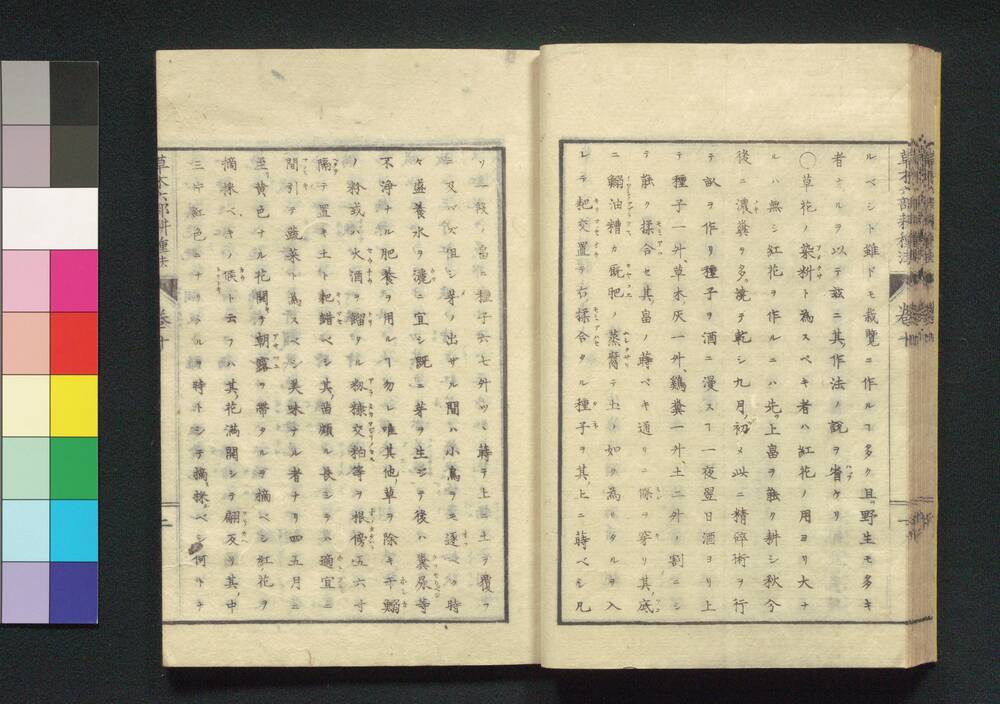 ルベシト雖ドモ栽覽ニ作ルヿ多ク且野生モ多キ
者ナルヲ以テ茲ニ其作法ノ說ヲ省ケリ
〇草花ノ染料ト為スベキ者ハ紅花ノ用ヨリ大ナ
ルハ無シ紅花ヲ作ルニハ先上畠ヲ能ク耕シ秋分
後ニ濃糞ヲ多澆テ乾シ九月ノ初メ此ニ精碎術ヲ行
テ畝ヲ作リ種子ヲ酒ニ漫スヿ一夜翌日酒ヨリ上
テ種子一升草木灰一升鷄糞一升土二升ノ割ニシ
テ能ク揉合セ其畠ノ蒔ベキ通リニ際ヲ穿リ其底
ニ鰯油糟カ厩肥ノ蒸腐テ土ノ如ク為リタルヲ入
レテ耙交置テ右揉合タル種子ヲ其上ニ蒔ベシ凡
ソ一段ノ畠ニ種子六七升ツヽ蒔テ上ニ土ヲ覆フ
ニ及バズ但シ芽ノ出ザル間ハ小鳥ヲモ逐ベク時
々盛養水ヲ澆ニ宜シ既ニ芽ヲ生ジテ後ハ糞尿等
不淨ナル肥養ヲ用ルヿ勿レ唯其他ノ草ヲ除キ干鰯
ノ粉或ハ火酒ヲ餾タル粉糠交粕等ヲ根傍五六寸
隔テ置キ土ト耙錯ベシ其苗頗ル長シテハ適宜ニ
間引テ蔬菜ト為スベシ美味ナル者ナリ四五月ニ
至リ黃色ナル花開ク朝露ヲ帶タルヲ摘ベシ紅花ヲ
摘採ベキノ候ト云フハ其花滿開シテ飜反リ其中
三片紅色ニナリタルヲ時トシテ摘採ベシ何トナ
草木六部耕種法
卷十
二